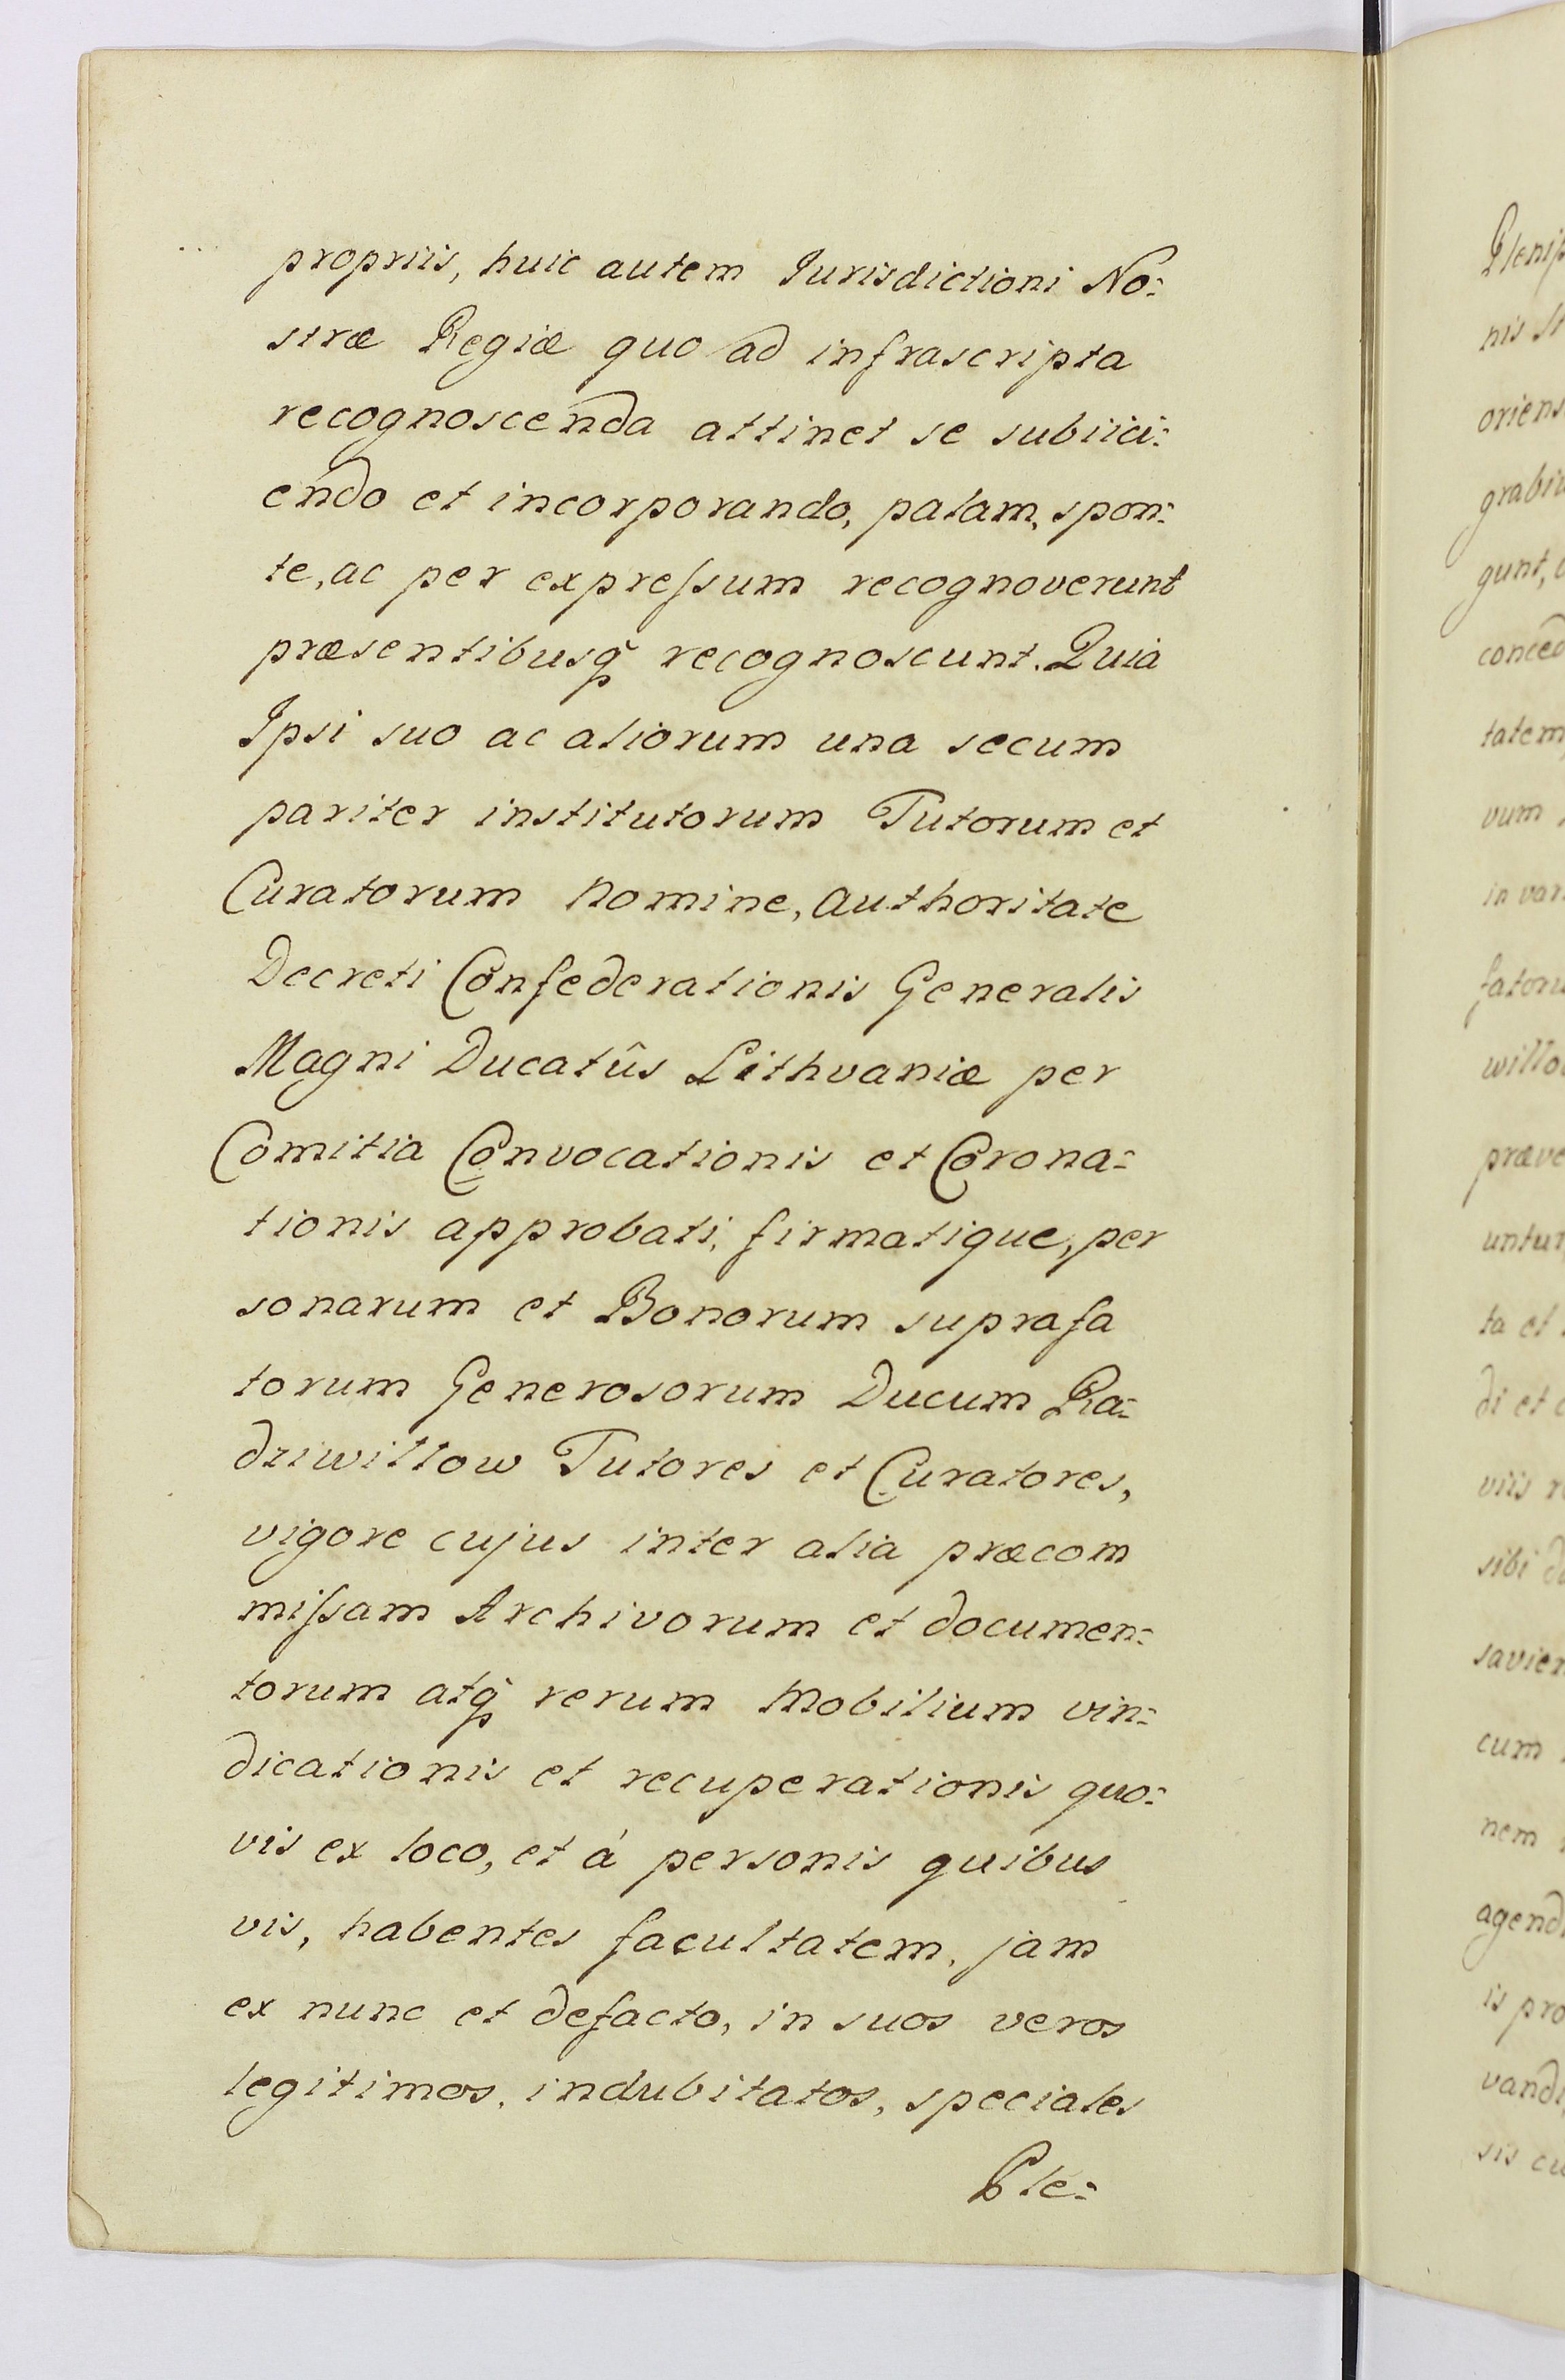 propriis, huic autem Iurisdictioni No:
stræ Regiæ quo ad infrascripta
recognoscenda attinet se subiici:
endo et incorporando, palam, spon:
te, ac per expreſsum recognoverunt
præsentibusq̃ recognoscunt. Quia
Ipsi suo ac aliorum una secum
pariter institutorum Tutorum et
Curatorum Nomine, authoritate
Decreti Confederationis Generalis
Magni Ducatûs Lithvaniæ per
Comitia Convocationis et Corona:
tionis approbati, firmatique, per
sonarum et Bonorum suprafa
torum Generosorum Ducum Ra:
dziwiłłow Tutores et Curatores,
vigore cujus inter alia præcom
miſsam Archivorum et documen:
torum atq̃ rerum Mobilium vin:
dicationis et recuperationis quo:
vis ex loco, et á personis quibus
vis, habentes facultatem, jam
ex nunc et defacto, in suos veros
legitimos, indubitatos, speciales
Ple:
Plenip
nis St
oriens
grabi
gunt,
conced
tatem
vum
in var
fatoru
willo
præve
untur
ta et
di et
viis r
sibi
savier
cum
nem
agend
is pro
vandi
sis cu